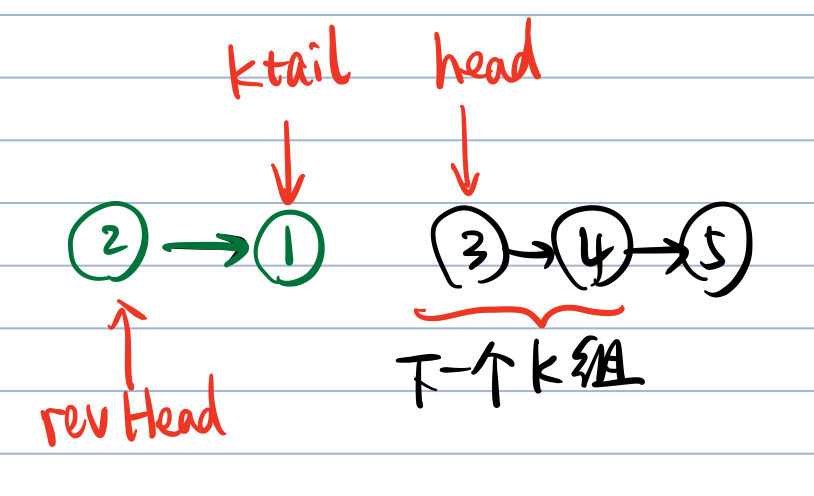 ktail head
2 1 3 4 5
revHead
下一个K组